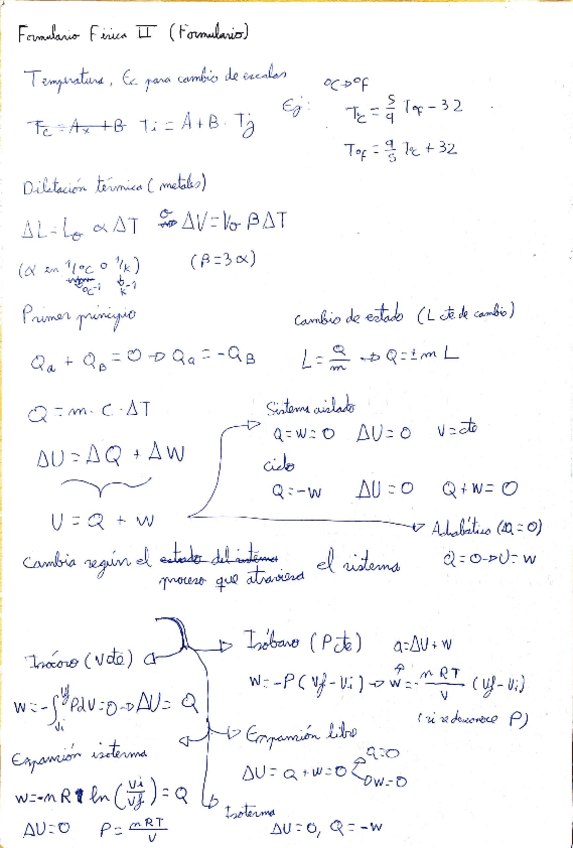 Formulario Física II (Formulario)
Temperatura, Ec para cambio de escalas
T_c = A_x + B T_i = A + B · T_j
Ej: °C → °F
T_°C = 5/9 T_°F - 32
T_°F = 9/5 T_°C + 32
Dilatación térmica (metales)
ΔL = L_0 α ΔT o ΔV = V_0 β ΔT
(α en 1/°C o 1/K) (β = 3α)
°C⁻¹ K⁻¹
Primer principio
Q_a + Q_B = 0 → Q_a = -Q_B
Cambio de estado (L cte de cambio)
L = Q/m → Q = ± m L
Q = m · C · ΔT
ΔU = ΔQ + ΔW
U = Q + W
Sistema aislado
Q = W = 0 ΔU = 0 U = cte
ciclo
Q = -W ΔU = 0 Q + W = 0
Adiabático (ΔQ = 0)
Q = 0 → U = W
Cambia según el estado del sistema
proceso que atraviesa el sistema
Isócoro (V cte)
W = -∫_{Vi}^{Vf} P dV = 0 → ΔU = Q
Isóbaro (P cte) Q = ΔU + W
W = -P (Vf - Vi) → W = - nRT/V (Vf - Vi)
(si se desconoce P)
Expansión isoterma
W = -nRT ln (Vi/Vf) = Q
ΔU = 0 P = nRT/V
Expansión libre
ΔU = Q + W = 0 Q = 0
W = 0
Isoterma
ΔU = 0, Q = -W